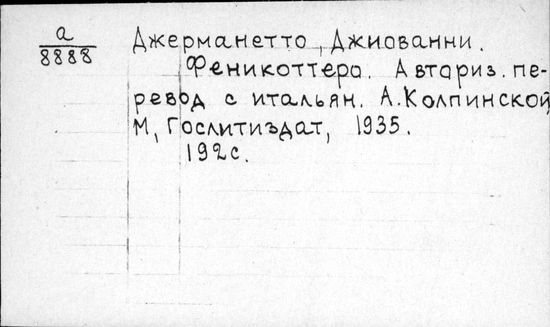 а
8888
Джерманетто, Джиованни.
Феникоттеро. Авториз. пе-
ревод с итальян. А. Колпинской,
М, Гослитиздат, 1935.
192с.